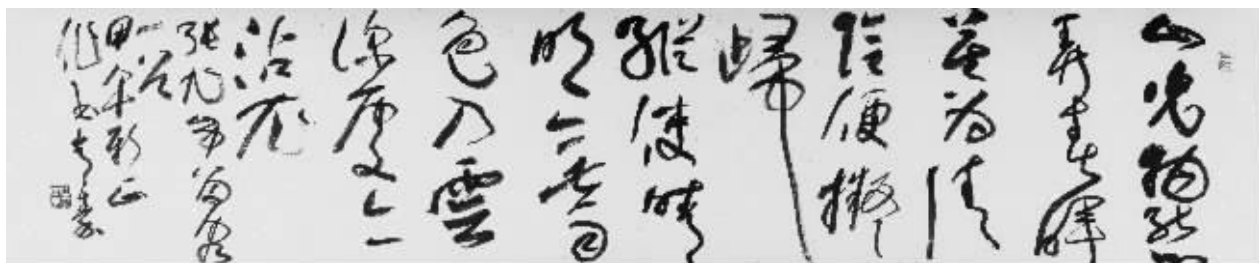 山光物態
弄春暉
莫為清
陰便擬
歸
縱使晴
明無雨
色入雲
深處亦
沾衣
張旭留客
一首
甲午新正